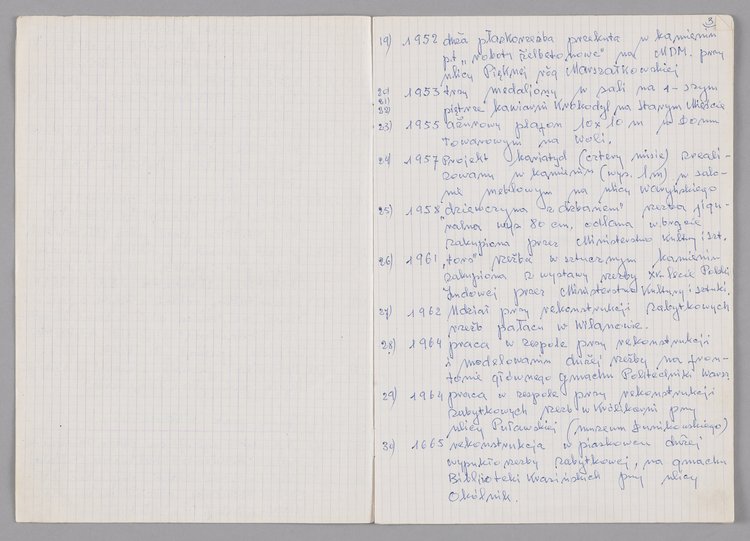 3
19) 1952 duża płaskorzeźba przekuta w kamieniu
pt „roboty żelbetonowe" na MDM. przy
ulicy Pięknej róg Marszałkowskiej
20) 1953 trzy medaliony w sali na 1-szym
21)
22) piętrze kawiarni Krokodyl na Starym Mieście
23) 1955 ażurowy plafon 10x10 m w Domu
Towarowym na Woli.
24) 1957 Projekt kariatyd (cztery misie) zreali-
zowany w kamieniu (wys. 1m) w salo-
nie meblowym na ulicy Waryńskiego
25) 1958 "dziewczyna z dzbanem" rzeźba figu-
ralna wys 80 cm. odlana w brązie
zakupiona przez Ministerstwo Kultury i Szt.
26) 1961 „tors" rzeźba w sztucznym kamieniu
zakupiona z wystawy rzeźby XV lecie Polski
Ludowej przez Ministerstwo Kultury i Sztuki.
27) 1962 Udział przy rekonstrukcji zabytkowych
rzeźb pałacu w Wilanowie.
28) 1964 praca w zespole przy rekonstrukcji
i modelowaniu dużej rzeźby na fron-
tonie głównego gmachu Politechniki Warsz.
29) 1964 praca w zespole przy rekonstrukcji
zabytkowych rzeźb w Królikarni przy
ulicy Puławskiej (muzeum Dunikowskiego)
30) 1665 rekonstrukcja w piaskowcu dużej
wypukłorzeźby zabytkowej, na gmachu
Biblioteki Krasińskich przy ulicy
Okólnik.